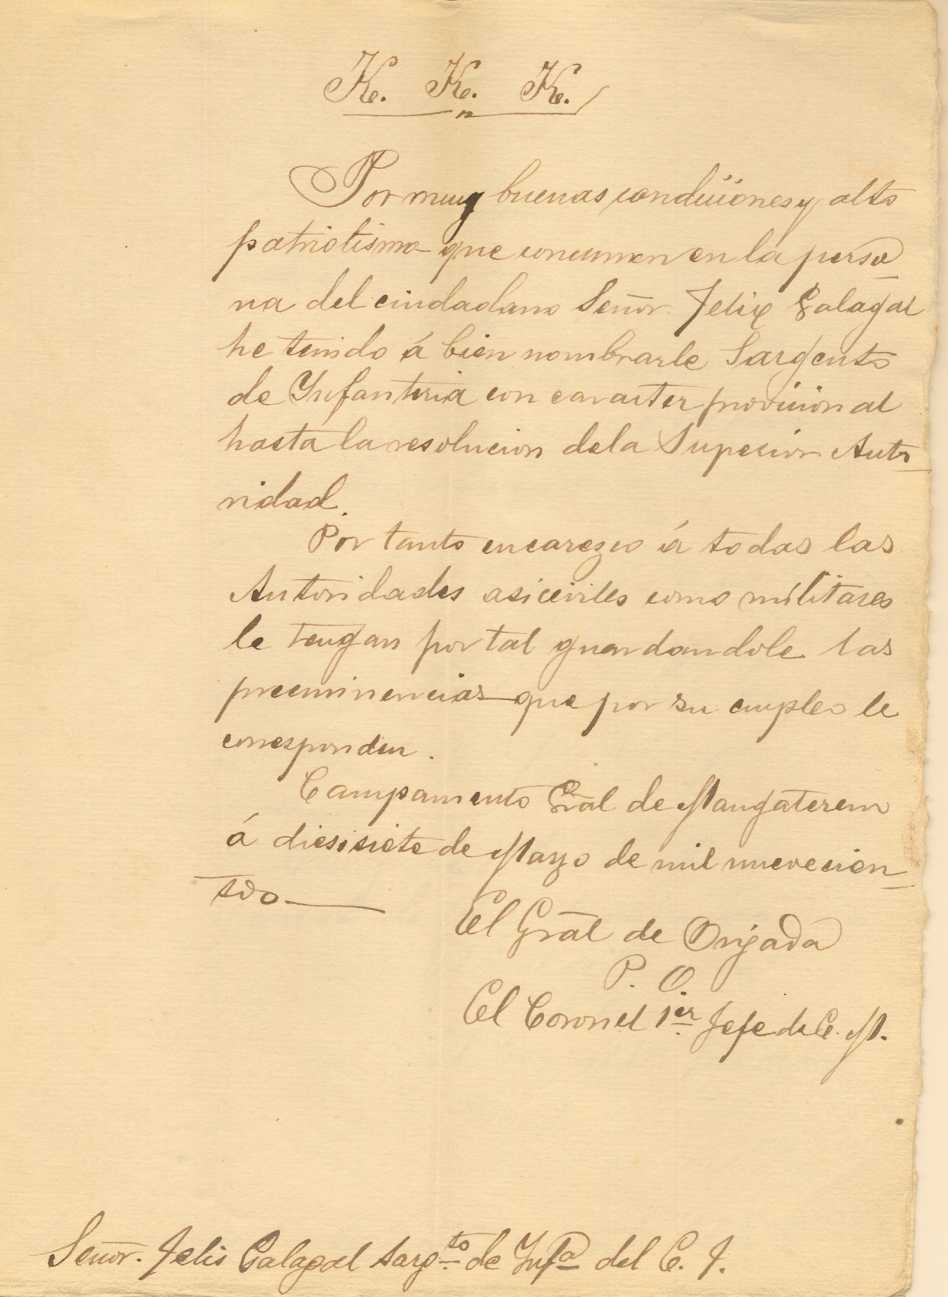 K. K. K.
Por muy buenas condiciones y alto
patriotismo que concurren en la perso_
na del ciudadano Señor Felix Galagal
he tenido á bien nombrarle Sargento
de Infanteria con caracter provicional
hasta la resolucion dela Superior Auto_
ridad.
Por tanto encarezco á todas las
Autoridades asi civiles como militares
le tengan por tal guardandole las
preeminencias que por su empleo le
corresponden.
Campamento Gral de
á diesisiete de Mayo de mil nuevecien_
tos
El Gral de Brigada
P. O.
El Coronel 1er Jefe de E. M.
Señor. Felis Galagal Sargto de Infa del E. F.